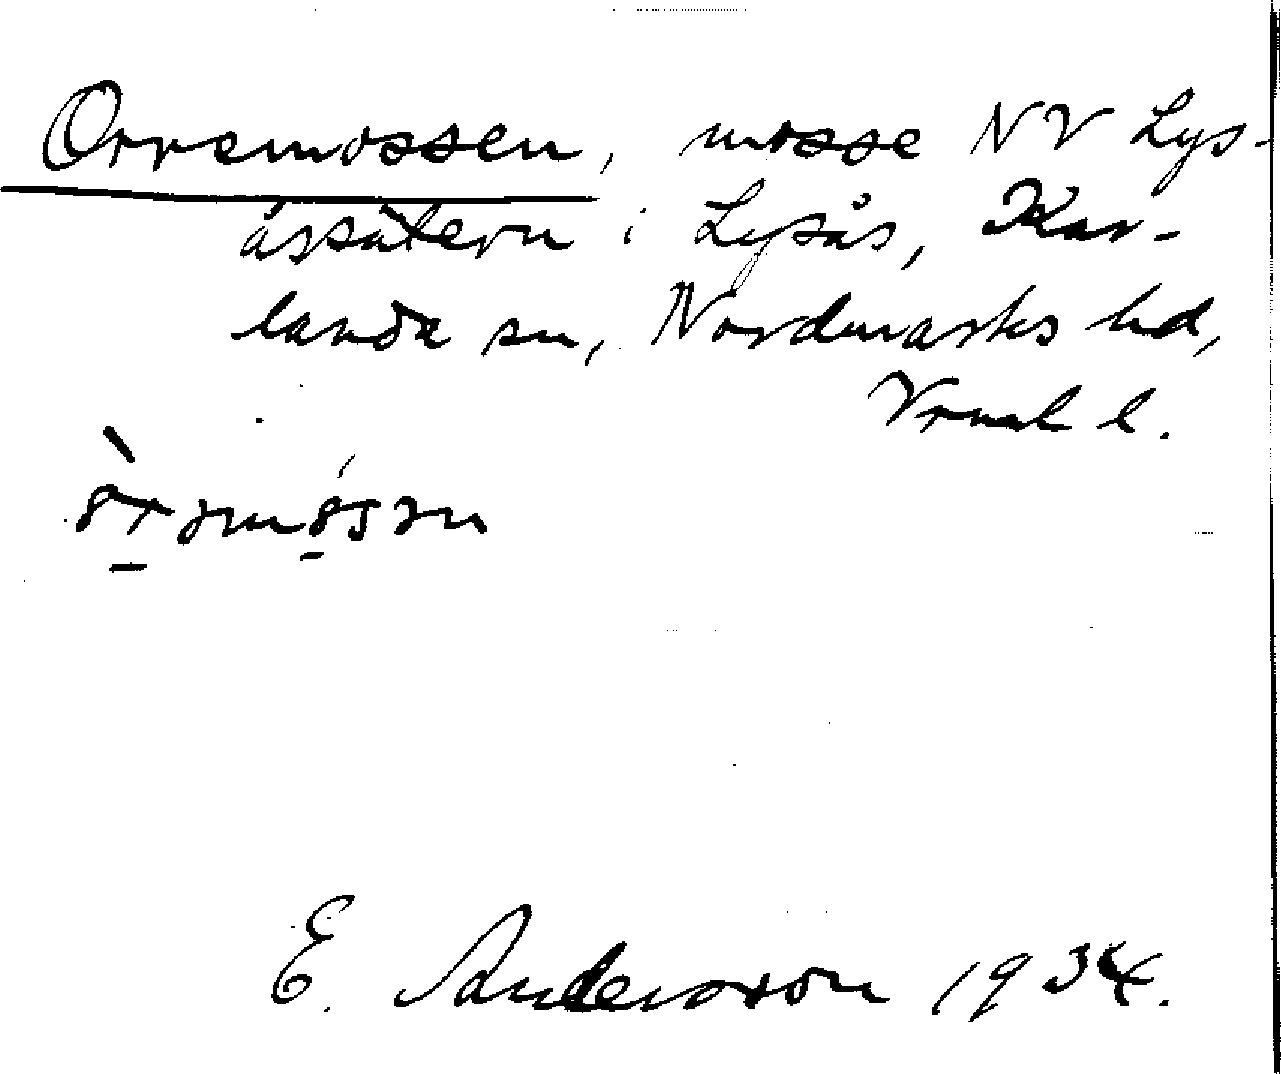 Orremossen, mosse NV Lys-
åssätern i Lysås, Kar-
landa sn, Nordmarks hd,
Vrml l.
E. Andersson 1934.